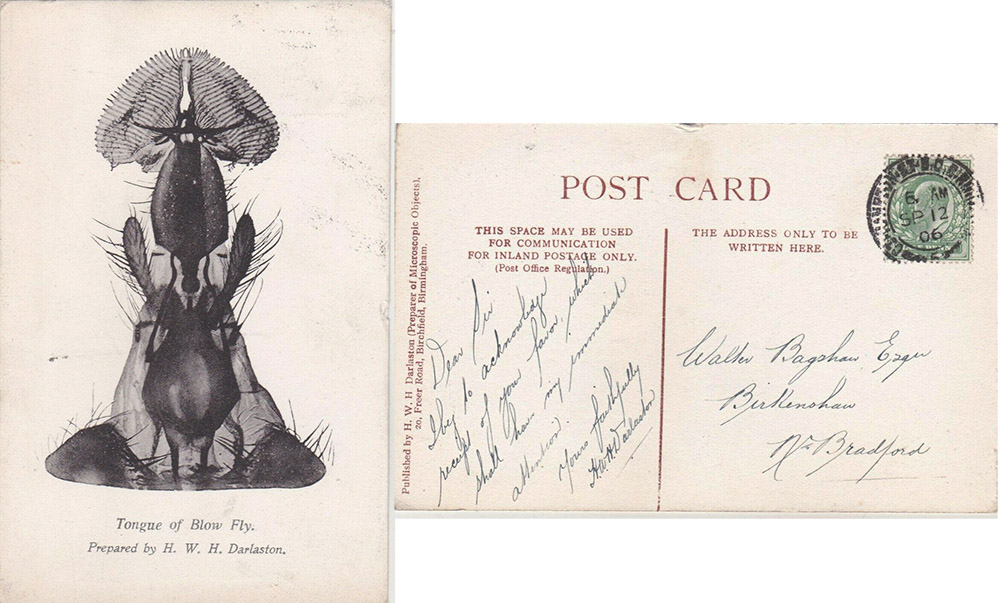 Tongue of Blow Fly.
Prepared by H. W. H. Darlaston.
Published by H. W. H Darlaston (Preparer of Microscopic Objects),
20, Freer Road, Birchfield, Birmingham.
POST CARD
THIS SPACE MAY BE USED
FOR COMMUNICATION
FOR INLAND POSTAGE ONLY.
(Post Office Regulation.)
THE ADDRESS ONLY TO BE
WRITTEN HERE.
Dear Sir
I beg to acknowledge
receipt of your favor, which
shall have my immediate
attention.
Yours faithfully
H.W.H. Darlaston
Walter Bagshaw Esqre
Birkenshaw
Nr Bradford
AM
SP 12
06